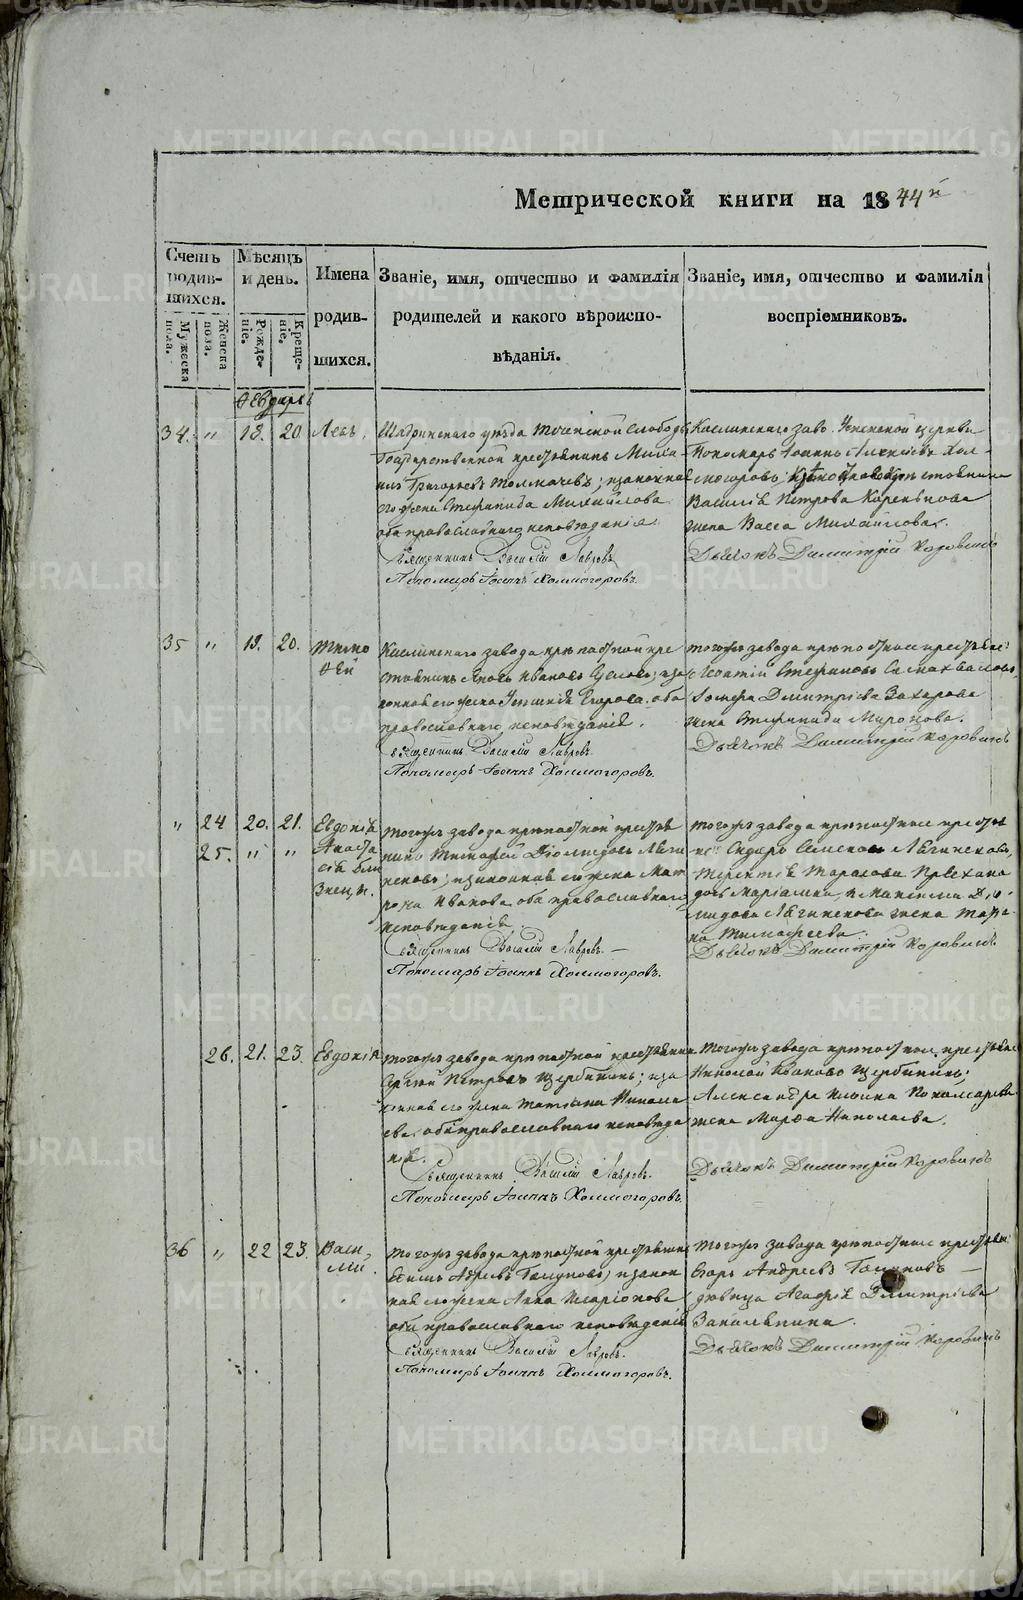 Метрической книги на 1844й
Счетъ родив-шихся.
Мужеска пола.
Женска пола.
Мѣсяцъ и день.
Рожде-ніе.
Креще-ніе.
Имена
родив-
шихся.
Званіе, имя, отчество и фамилія
родителей и какого вѣроиспо-
вѣданія.
Званіе, имя, отчество и фамилія
воспріемниковъ.
Февраль
34. " 18. 20 Левъ.
Шадринскаго уѣзда Теченской слободы
Государственной крестьянинъ Миха
илъ Григорьевъ Толмачевъ; и законная
его жена Стефанида Михайлова
оба православнаго исповѣданія.
Священникъ Василій Лавровъ
Пономарь Іоаннъ Холмогоровъ.
Каслинскаго заво. Успенской церкви
Пономарь Іоаннъ Алексѣевъ Хол-
могоровъ;
Василія Петрова
жена Васса Михайлова.
Дьячокъ Димитрій Коровинъ
35 " 19. 20. Тимо
ѳей
Каслинскаго завода крѣпостной кре
стьянинъ Яковъ Ивановъ и за
конная его жена Егорова оба
православнаго исповѣданія.
Священникъ Василій Лавровъ.
Пономарь Іоаннъ Холмогоровъ.
Тогожъ завода крѣпостные крестьяне:
Леонтій Стефановъ
Димитріева Захарова
жена Стефанида Миронова.
Дьячокъ Димитрій Коровинъ
" 24 20. 21. Евдокія
25. " " Анаста
сія Бли
знецы.
Тогожъ завода крѣпостной крестья
нинъ Тимофей Діомидовъ
и законная его жена Мат
рона Иванова оба православнаго
исповѣданія.
Священникъ Василій Лавровъ.
Пономарь Іоаннъ Холмогоровъ.
Тогожъ завода крѣпостные крестья
не: Сидоръ Семеновъ
Терентія Тарасова
дочь Маріамна, и Максима Діо-
мидова жена
Тимофеева.
Дьячокъ Димитрій Коровинъ
26. 21. 23. Евдокія
Тогожъ завода крѣпостной крестьянинъ
Сергей Петровъ Щербининъ; и за
конная его жена Татьяна Никола
ева, оба православнаго исповѣда
нія.
Священникъ Василій Лавровъ.
Пономарь Іоаннъ Холмогоровъ.
Тогожъ завода крѣпостные крестьяне
Николай Ивановъ Щербининъ;
Александра Ильина Пономарева
жена Марѳа Николаева.
Дьячокъ Димитрій Коровинъ
36 " 22 23. Васи-
лій
Тогожъ завода крѣпостной крестьянинъ
Андреевъ Галуновъ; и закон
ная его жена Анна Иларіонова
оба православнаго исповѣданія
Священникъ Василій Лавровъ.
Пономарь Іоаннъ Холмогоровъ.
Тогожъ завода крѣпостные крестьяне
Егоръ Андреевъ Галуновъ
девица Агафія Димитріева
Дьячокъ Димитрій Коровинъ
METRIKI.GASO-URAL.RU